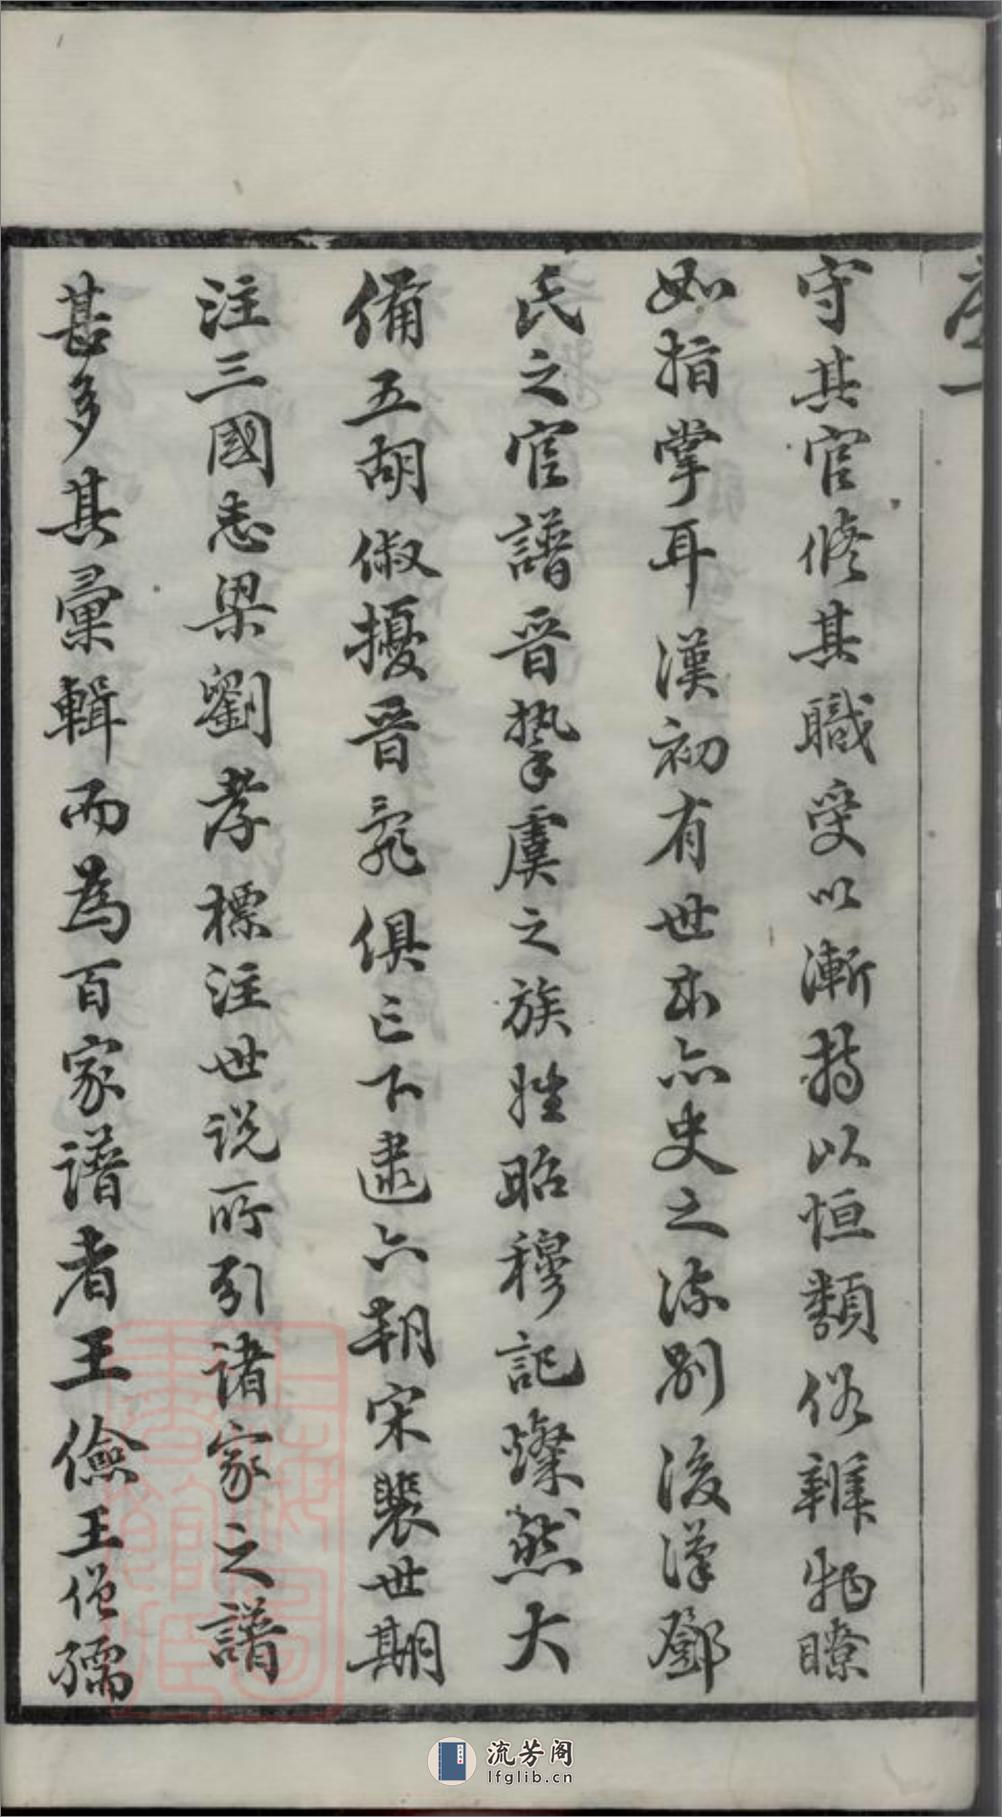 守其官修其職受以漸持以恒類俗辨物瞭
如指掌耳漢初有世本亦史之流別後漢鄧
氏之官譜晉摯虞之族姓昭穆記燦然大
備五胡俶擾晉乘俱亡下逮六朝宋裴世期
注三國志梁劉孝標注世說所引諸家之譜
甚多其彙輯而為百家譜者王儉王僧孺
流芳阁
lfglib.cn